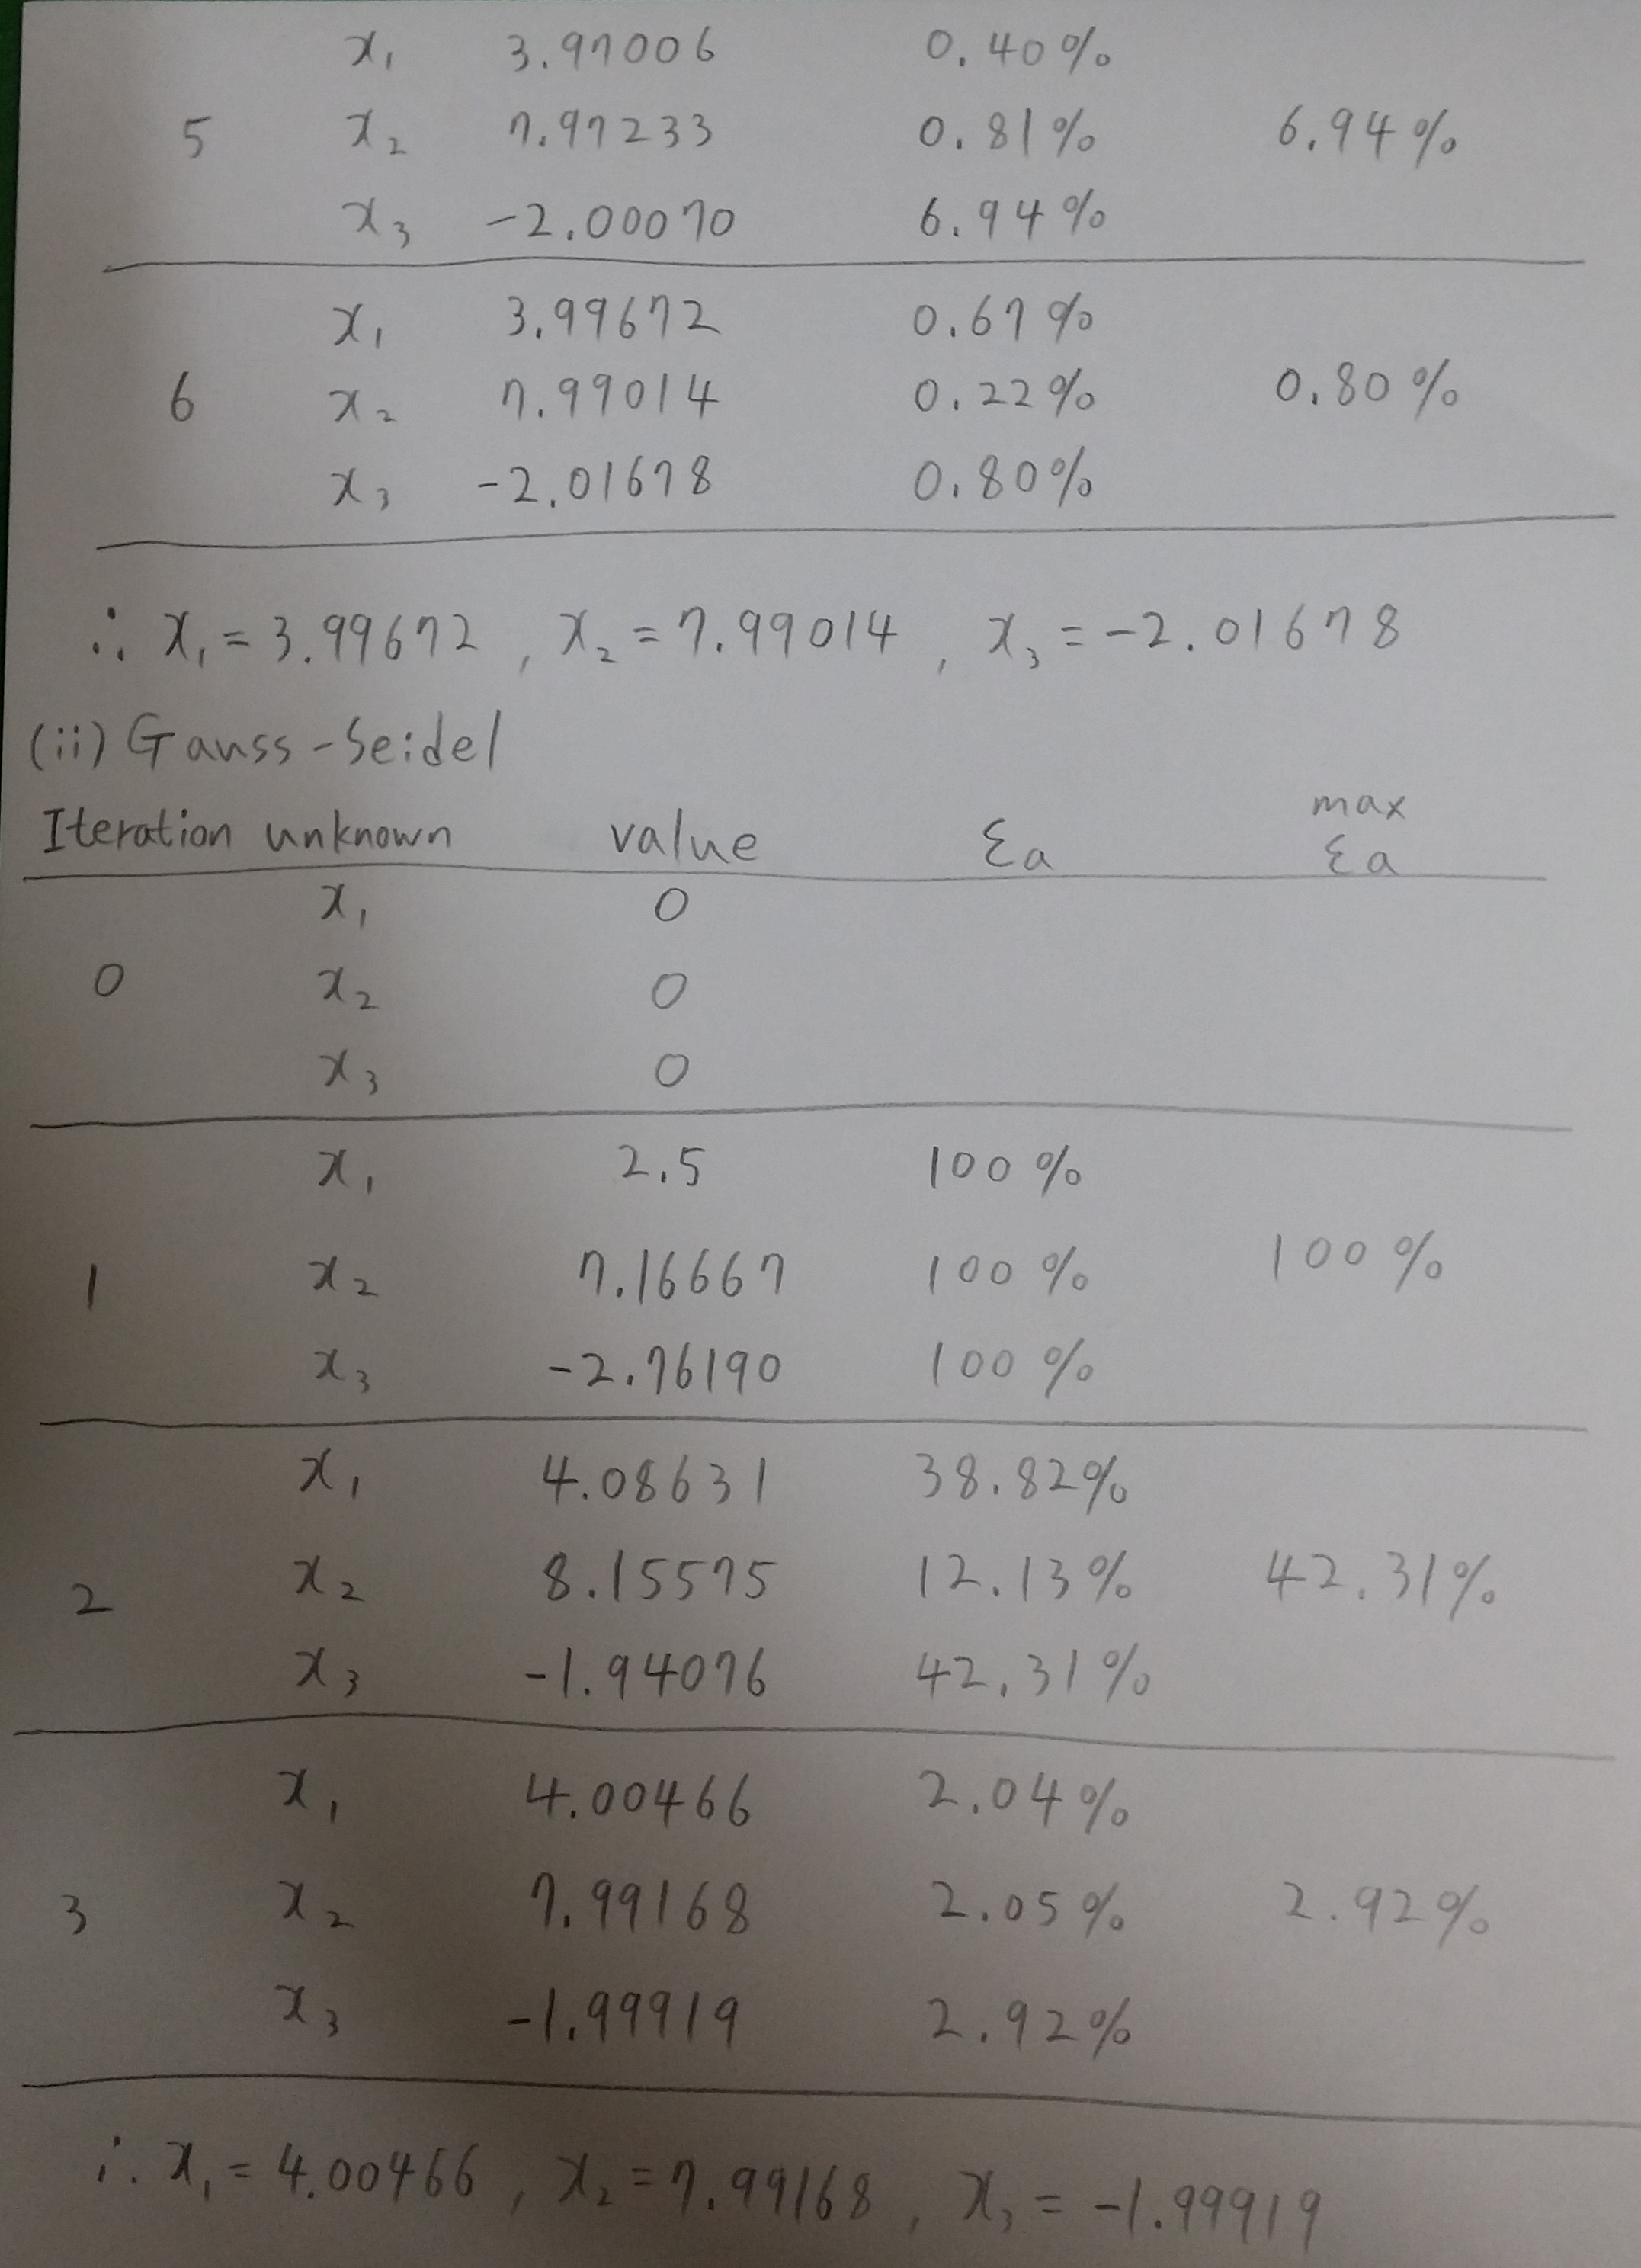 x₁ 3.97006 0.40%
5 x₂ 7.97233 0.81% 6.94%
x₃ -2.00070 6.94%
x₁ 3.99672 0.67%
6 x₂ 7.99014 0.22% 0.80%
x₃ -2.01678 0.80%
∴ x₁ = 3.99672, x₂ = 7.99014, x₃ = -2.01678
(ii) Gauss-Seidel
Iteration unknown value εa max εa
x₁ 0
0 x₂ 0
x₃ 0
x₁ 2.5 100%
1 x₂ 7.16667 100% 100%
x₃ -2.76190 100%
x₁ 4.08631 38.82%
2 x₂ 8.15575 12.13% 42.31%
x₃ -1.94076 42.31%
x₁ 4.00466 2.04%
3 x₂ 7.99168 2.05% 2.92%
x₃ -1.99919 2.92%
∴ x₁ = 4.00466, x₂ = 7.99168, x₃ = -1.99919